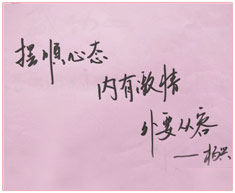 摆顺心态
内有激情
外要从容
——杨兴